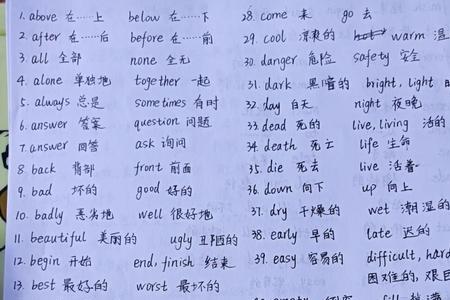 1. above 在……上 below 在……下
2. after 在……后 before 在……前
3. all 全部 none 全无
4. alone 单独地 together 一起
5. always 总是 sometimes 有时
6. answer 答案 question 问题
7. answer 回答 ask 询问
8. back 背部 front 前面
9. bad 坏的 good 好的
10. badly 恶劣地 well 很好地
11. beautiful 美丽的 ugly 丑陋的
12. begin 开始 end, finish 结束
13. best 最好的 worst 最坏的
28. come 来 go 去
29. cool 凉爽的 warm 温
30. danger 危险 safety 安全
31. dark 黑暗的 bright, light
32. day 白天 night 夜晚
33. dead 死的 live, living 活的
34. death 死亡 life 生命
35. die 死去 live 活着
36. down 向下 up 向上
37. dry 干燥的 wet 潮湿的
38. early 早的 late 迟的
39. easy 容易的 difficult, hard
困难的, 艰